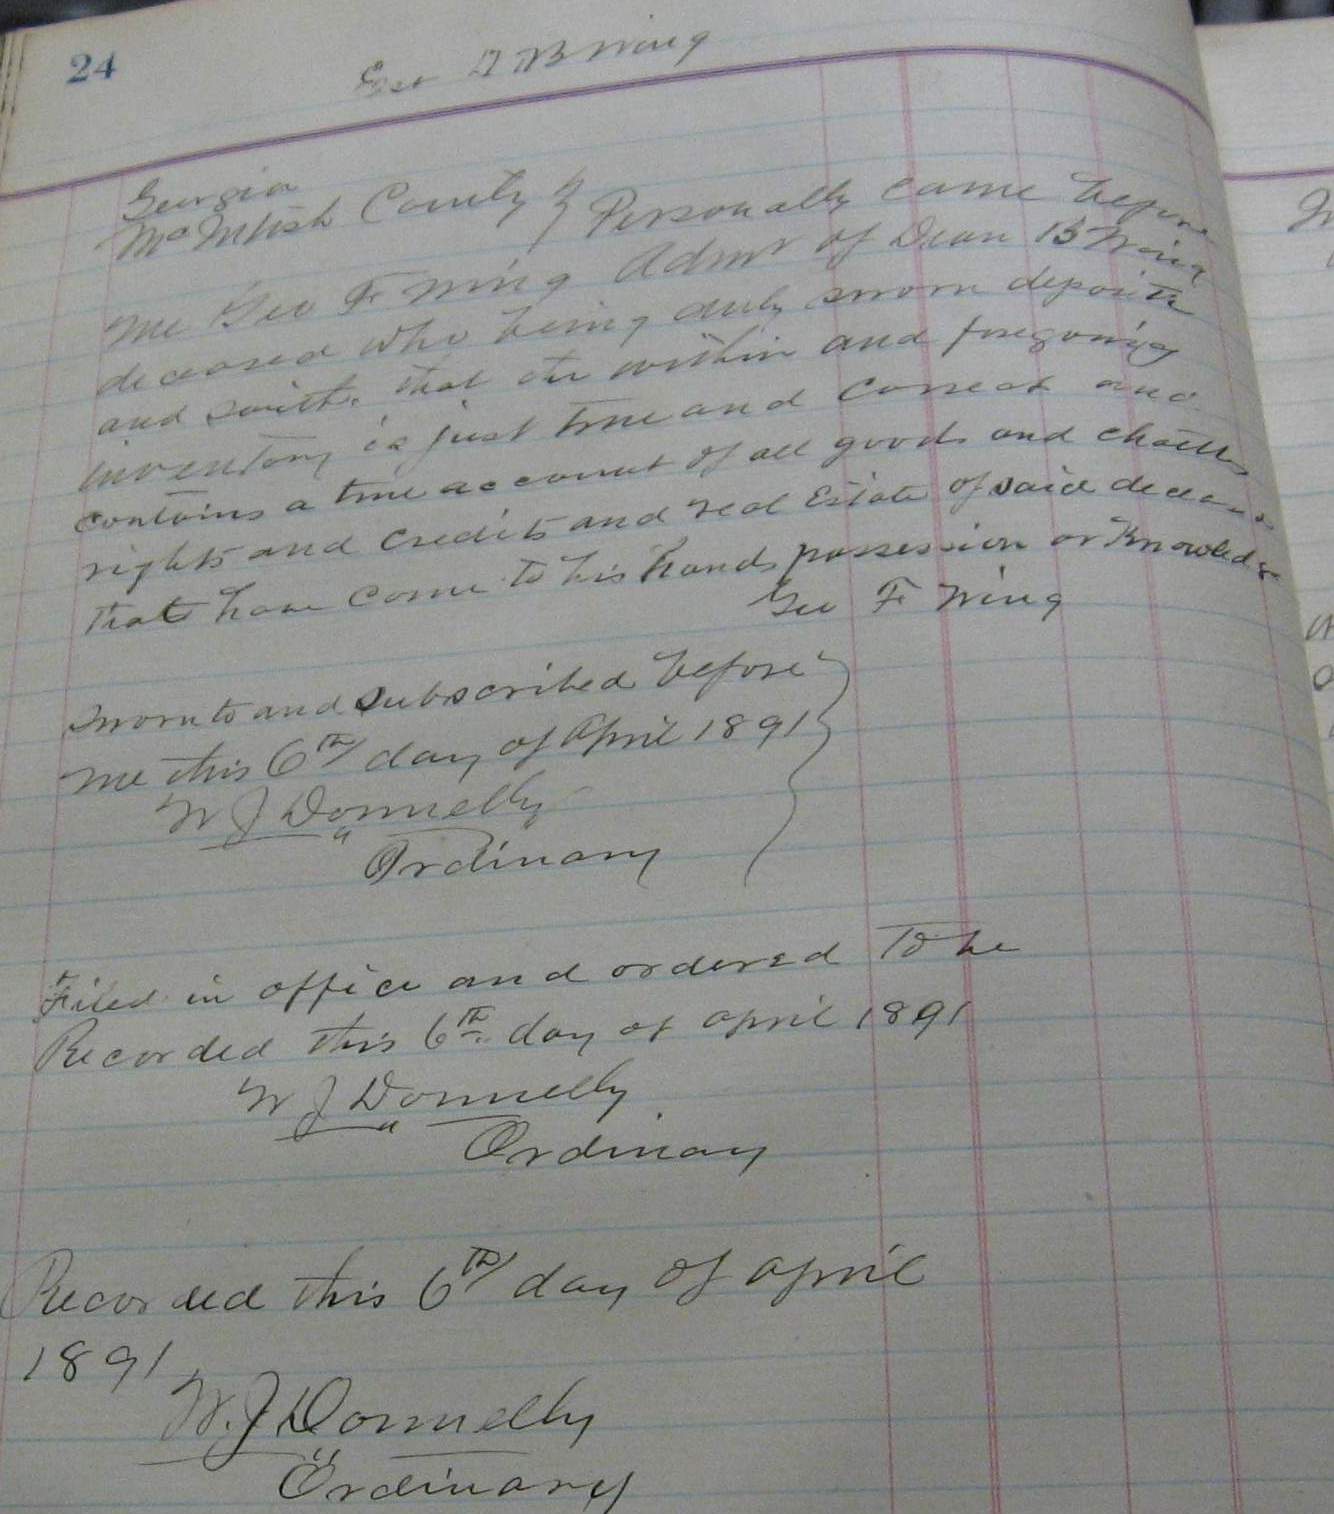 24
Est D B Wing
Georgia
McIntosh County } Personally came before
me Geo F Wing Admr of Dean B Wing
deceased who being duly sworn deposith
and saith that the within and foregoing
inventory is just true and correct and
contains a true account of all goods and chattels
rights and credits and real Estate of said deceased
that have come to his hands possession or Knowledge
Geo F Wing
Sworn to and subscribed before
me this 6th day of April 1891
W J Donnelly
Ordinary
Filed in office and ordered to be
Recorded this 6th day of april 1891
W J Donnelly
Ordinary
Recorded this 6th day of april
1891
W. J Donnelly
Ordinary